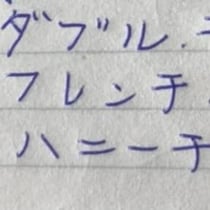 ダブル.
フレンチ
ハニーチ